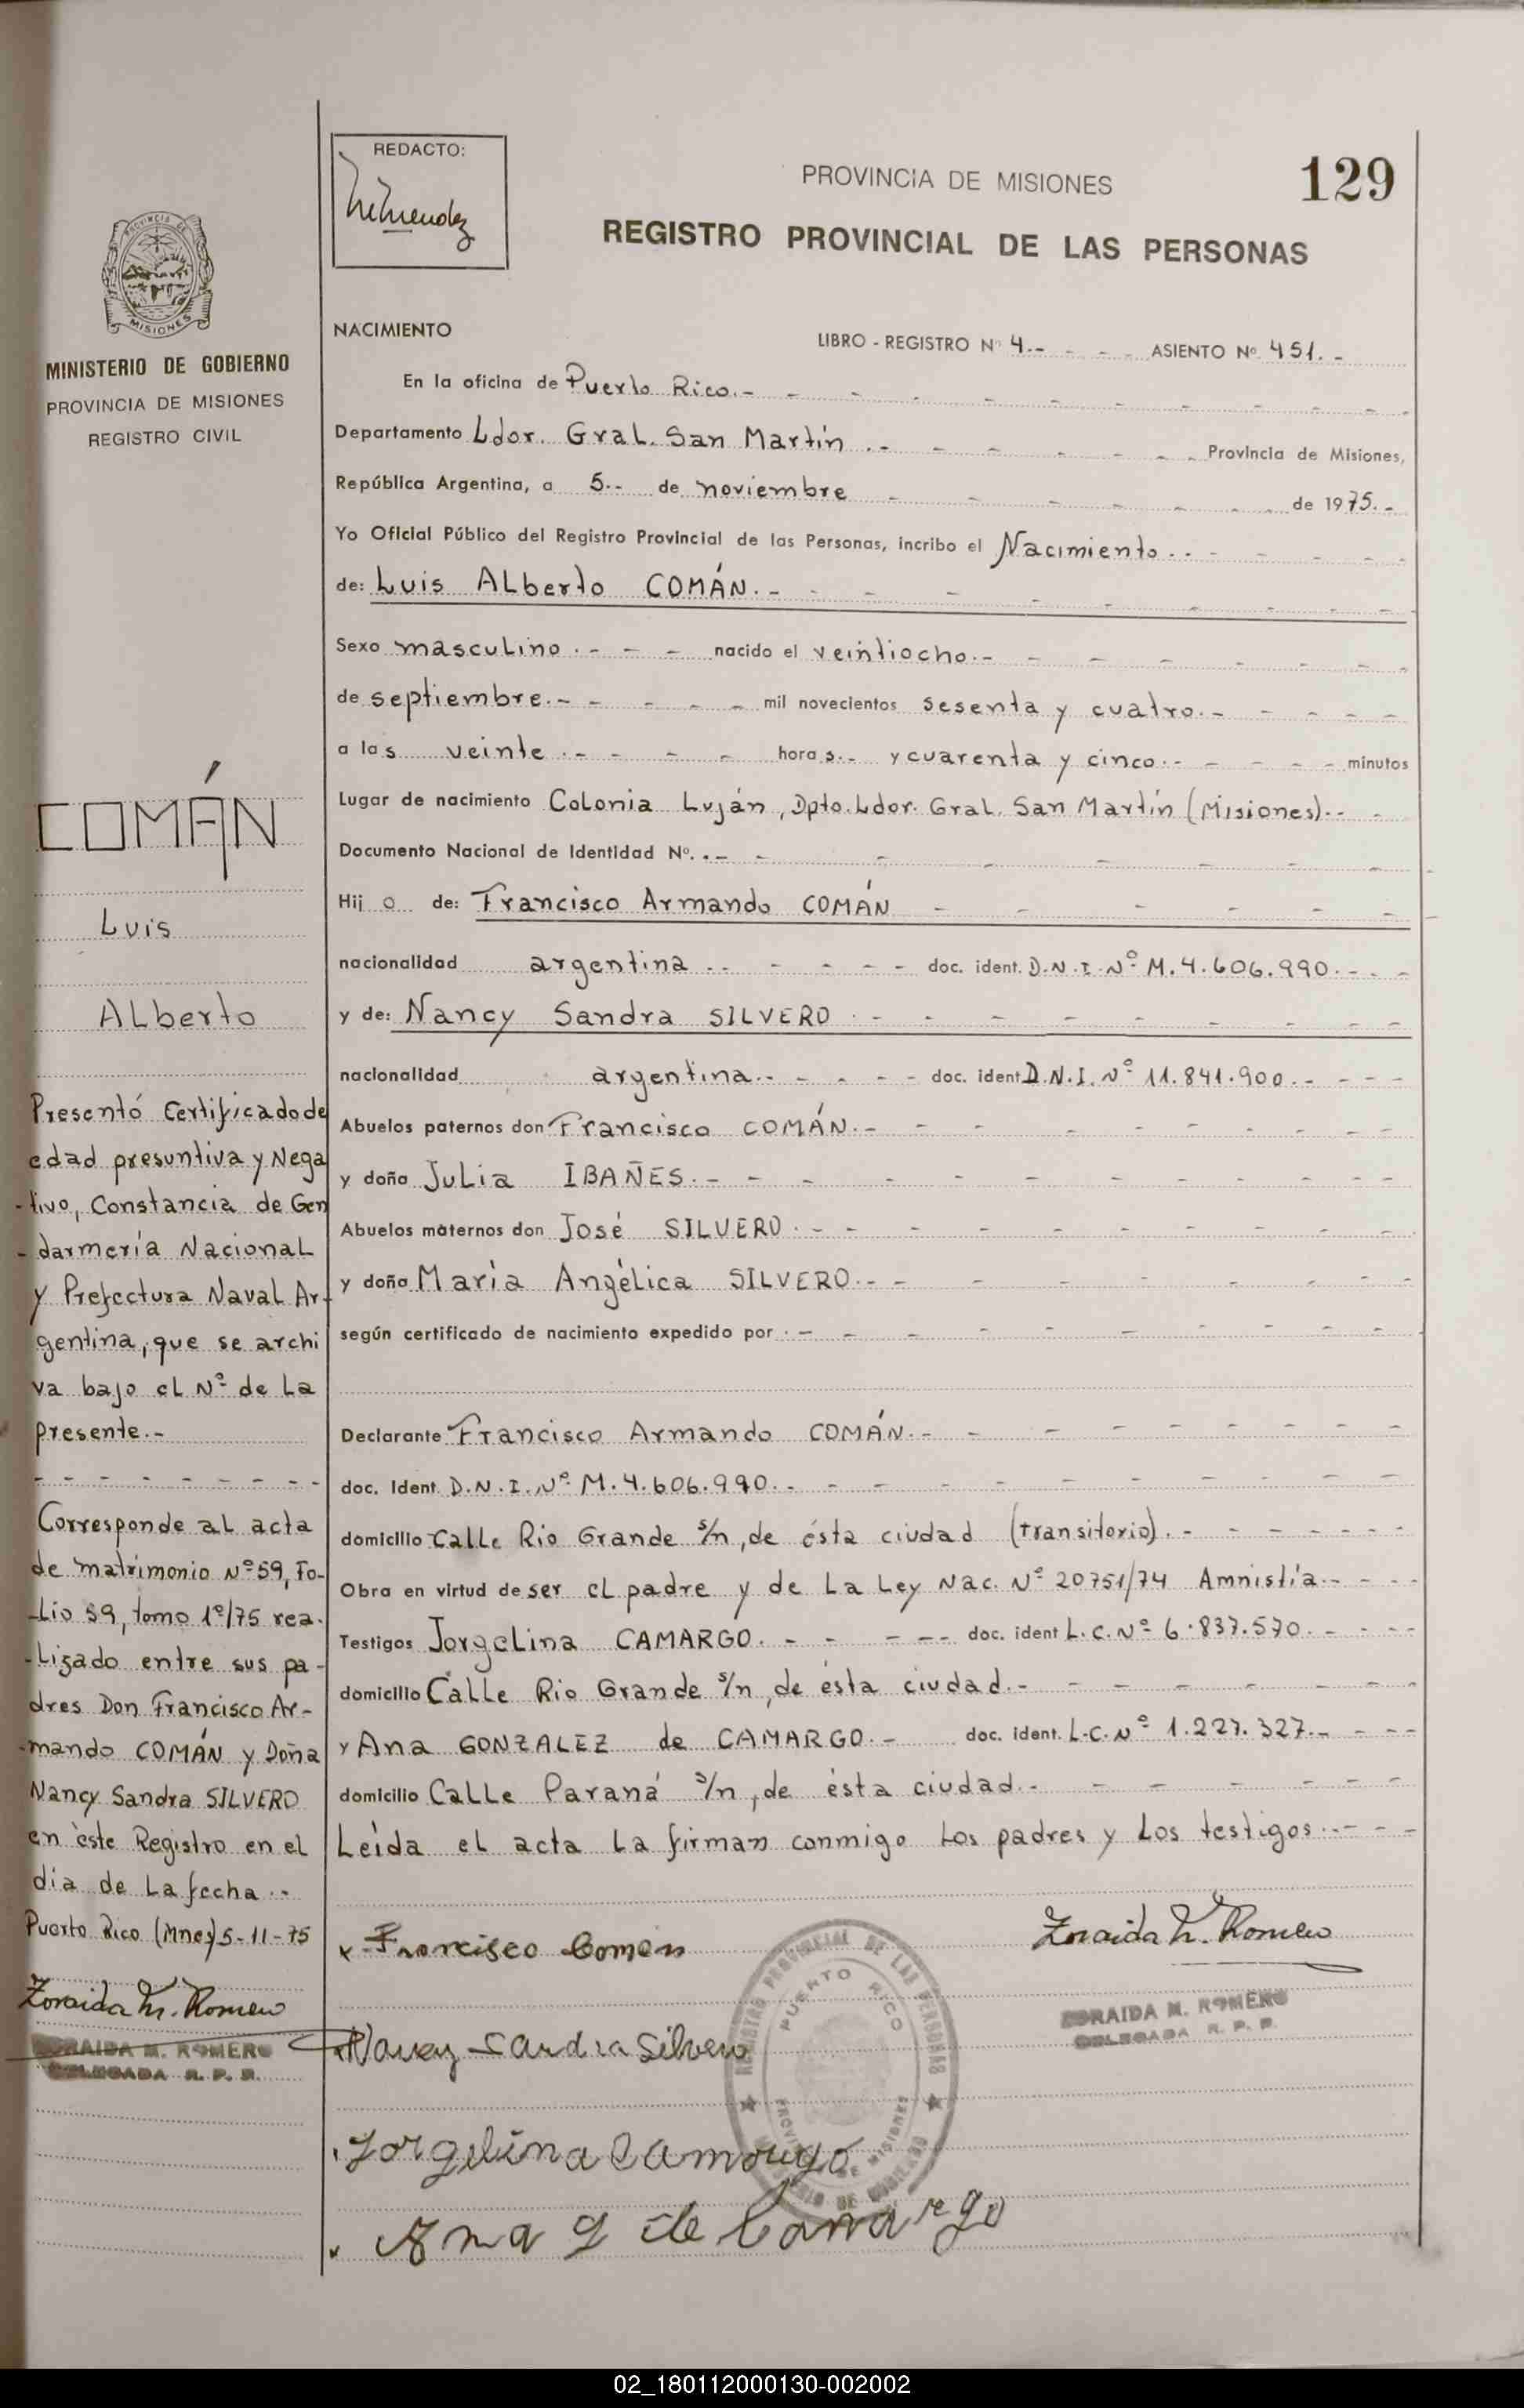 REDACTO:
PROVINCIA DE MISIONES
129
REGISTRO PROVINCIAL DE LAS PERSONAS
PROVINCIA DE
MISIONES
MINISTERIO DE GOBIERNO
PROVINCIA DE MISIONES
REGISTRO CIVIL
COMÁN
Luis
Alberto
Presentó Certificado de
edad presuntiva y Nega
-tivo, Constancia de Gen
-darmería Nacional
y Prefectura Naval Ar-
gentina, que se archi
va bajo el Nº de la
presente.-
Corresponde al acta
de matrimonio Nº 59, Fo-
-lio 59, tomo 1º/75 rea-
-lizado entre sus pa-
dres Don Francisco Ar-
-mando COMÁN y Doña
Nancy Sandra SILVERO
en éste Registro en el
día de la fecha.-
Puerto Rico (Mnes) 5-11-75
Zoraida M. Romero
ZORAIDA M. ROMERO
DELEGADA R. P. P.
NACIMIENTO
LIBRO - REGISTRO Nº 4.- - - - ASIENTO Nº 451.-
En la oficina de Puerto Rico.-
Departamento Ldor. Gral. San Martín.- Provincia de Misiones,
República Argentina, a 5.- de noviembre de 1975.-
Yo Oficial Público del Registro Provincial de las Personas, incribo el Nacimiento.-
de: Luis Alberto COMÁN.-
Sexo masculino.- nacido el veintiocho.-
de septiembre.- mil novecientos sesenta y cuatro.-
a las veinte.- horas.- y cuarenta y cinco.- minutos
Lugar de nacimiento Colonia Luján, Dpto. Ldor. Gral. San Martín (Misiones).-
Documento Nacional de Identidad Nº.-
Hijo de: Francisco Armando COMÁN
nacionalidad argentina.- doc. ident. D.N.I. Nº M. 4.606.990.-
y de: Nancy Sandra SILVERO.-
nacionalidad argentina.- doc. ident D.N.I. Nº 11.841.900.-
Abuelos paternos don Francisco COMÁN.-
y doña Julia IBAÑES.-
Abuelos maternos don José SILVERO.-
y doña María Angélica SILVERO.-
según certificado de nacimiento expedido por.-
Declarante Francisco Armando COMÁN.-
doc. Ident. D.N.I. Nº M. 4.606.990.-
domicilio Calle Rio Grande s/n, de ésta ciudad (transitorio).-
Obra en virtud de ser el padre y de la Ley Nac. Nº 20751/74 Amnistía.-
Testigos Jorgelina CAMARGO.- doc. ident L.C. Nº 6.837.570.-
domicilio Calle Rio Grande s/n, de ésta ciudad.-
y Ana GONZALEZ de CAMARGO.- doc. ident. L.C. Nº 1.227.327.-
domicilio Calle Paraná s/n, de ésta ciudad.-
Leída el acta la firman conmigo los padres y los testigos.-
x Francisco Coman
Zoraida M. Romero
ZORAIDA M. ROMERO
DELEGADA R. P. P.
REGISTRO PROVINCIAL DE LAS PERSONAS
PUERTO RICO
PROVINCIA DE MISIONES
Nancy Sandra Silvero
Jorgelina Camargo
x Ana g de Camargo
02_180112000130-002002